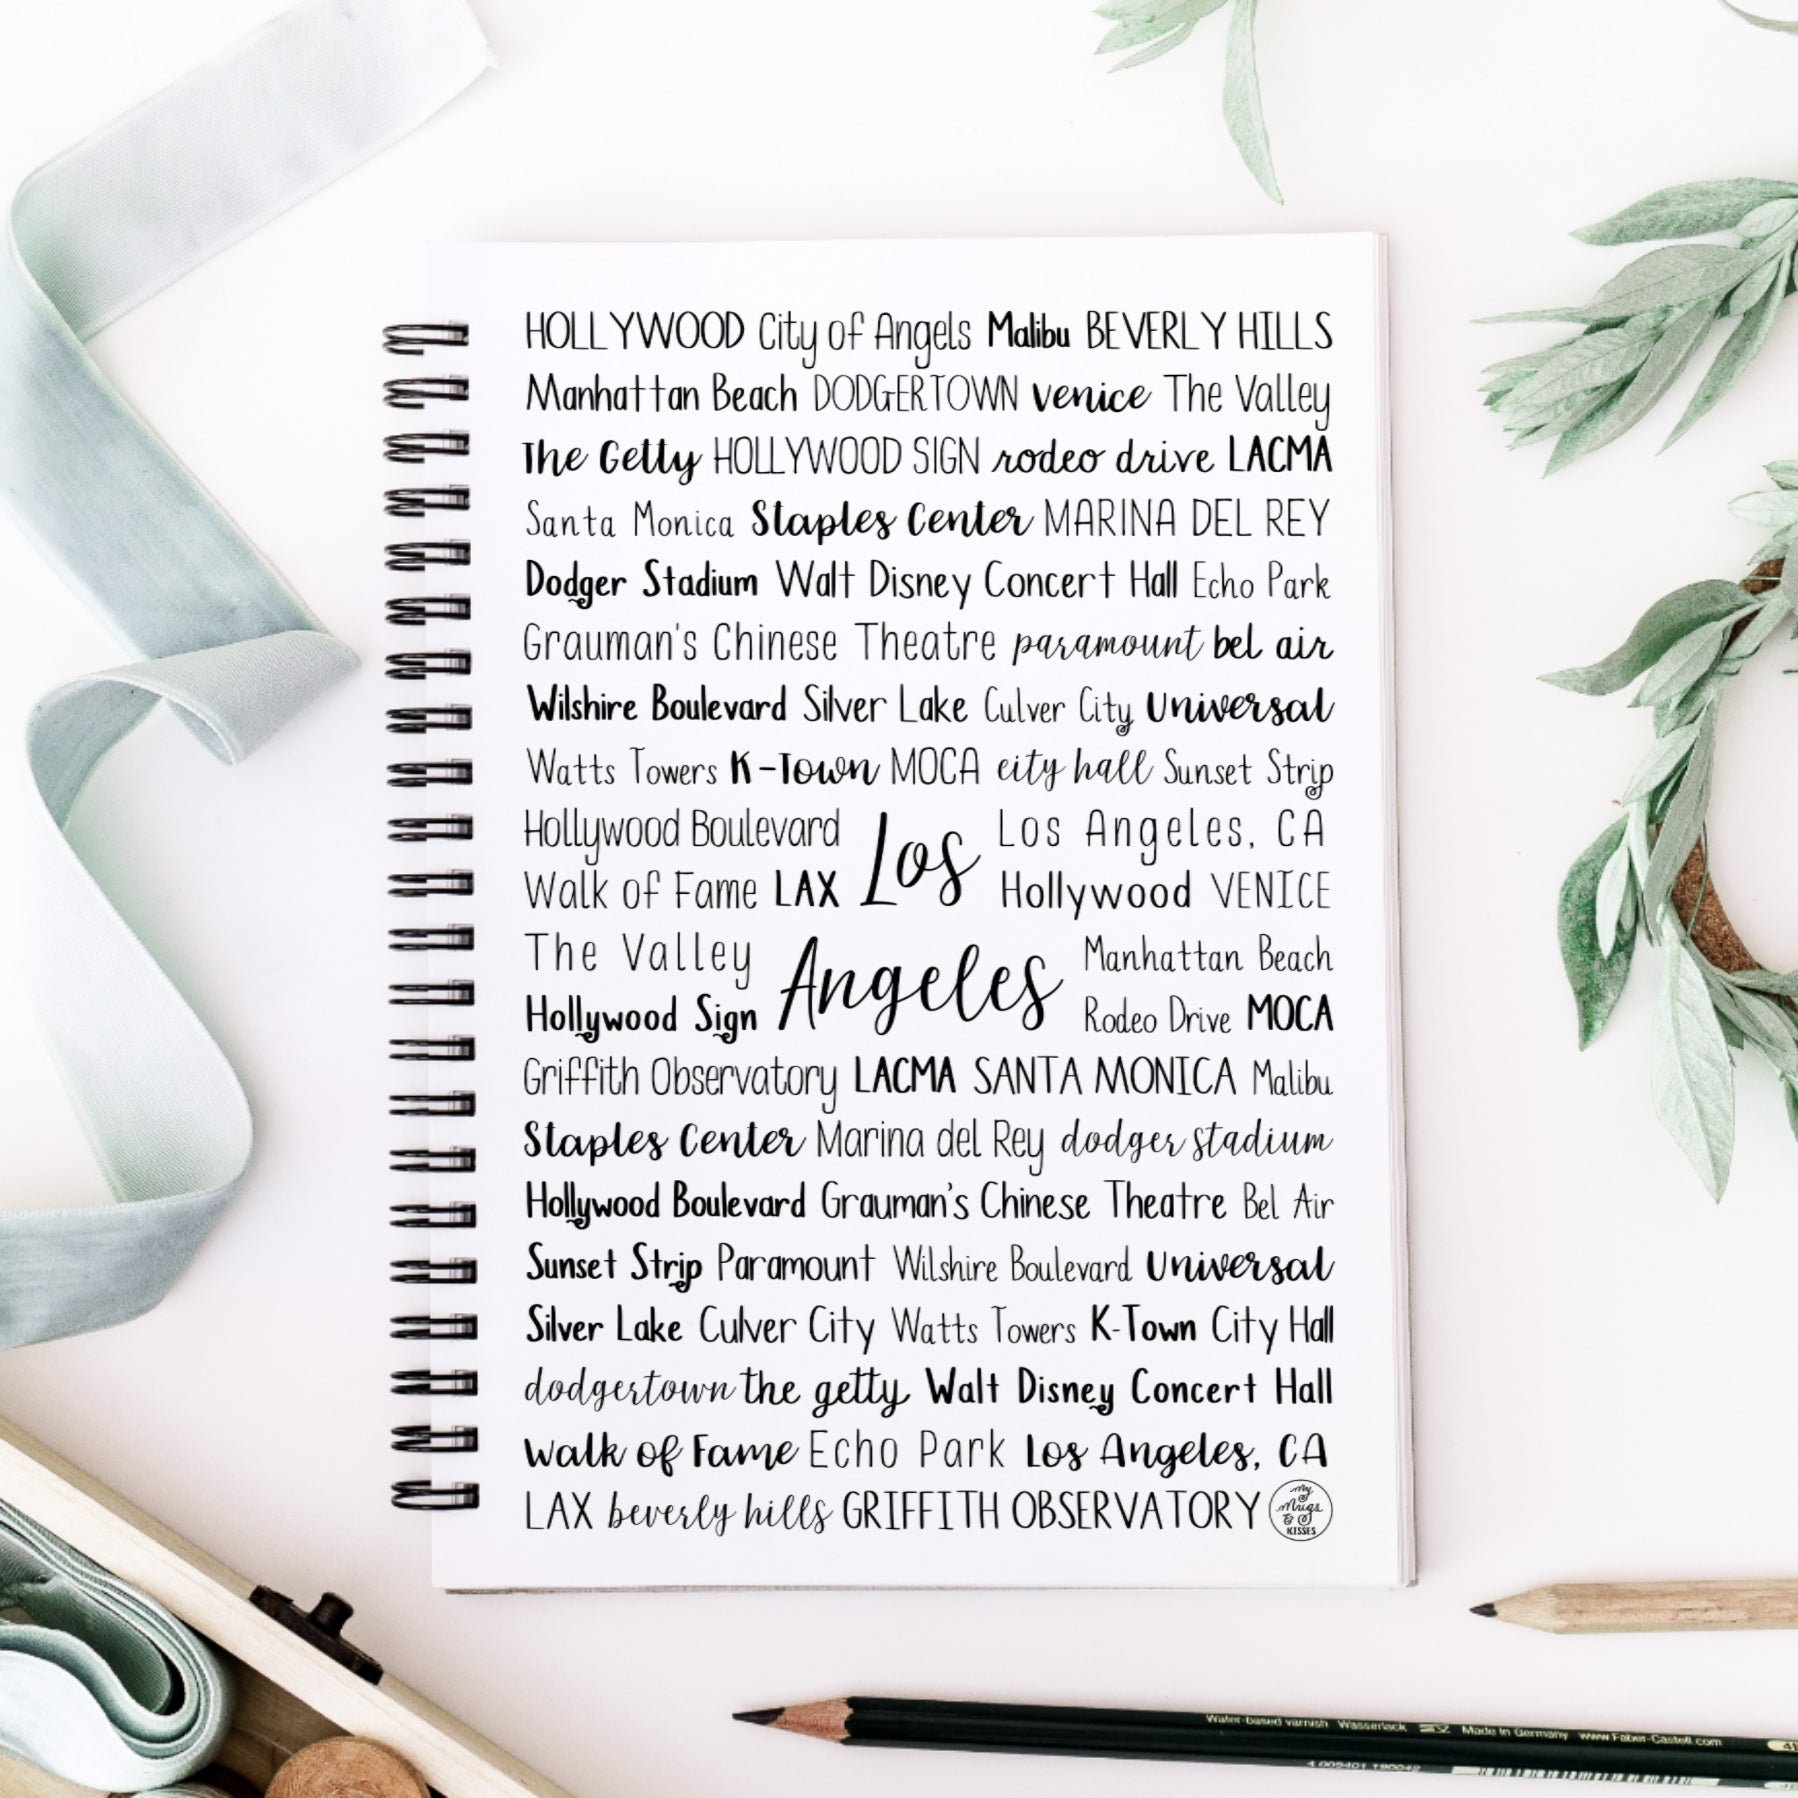 HOLLYWOOD City of Angels Malibu BEVERLY HILLS
Manhattan Beach DODGERTOWN venice The Valley
The Getty HOLLYWOOD SIGN rodeo drive LACMA
Santa Monica Staples Center MARINA DEL REY
Dodger Stadium Walt Disney Concert Hall Echo Park
Grauman's Chinese Theatre paramount bel air
Wilshire Boulevard Silver Lake Culver City Universal
Watts Towers K-Town MOCA city hall Sunset Strip
Hollywood Boulevard Los Los Angeles, CA
Walk of Fame LAX Hollywood VENICE
The Valley Angeles Manhattan Beach
Hollywood Sign Rodeo Drive MOCA
Griffith Observatory LACMA SANTA MONICA Malibu
Staples Center Marina del Rey dodger stadium
Hollywood Boulevard Grauman's Chinese Theatre Bel Air
Sunset Strip Paramount Wilshire Boulevard Universal
Silver Lake Culver City Watts Towers K-Town City Hall
dodgertown the getty Walt Disney Concert Hall
Walk of Fame Echo Park Los Angeles, CA
LAX beverly hills GRIFFITH OBSERVATORY
My
Mugs
&
KISSES
Water-based varnish Wasserlack Made in Germany www.Faber-Castell.com
4 005401 190042